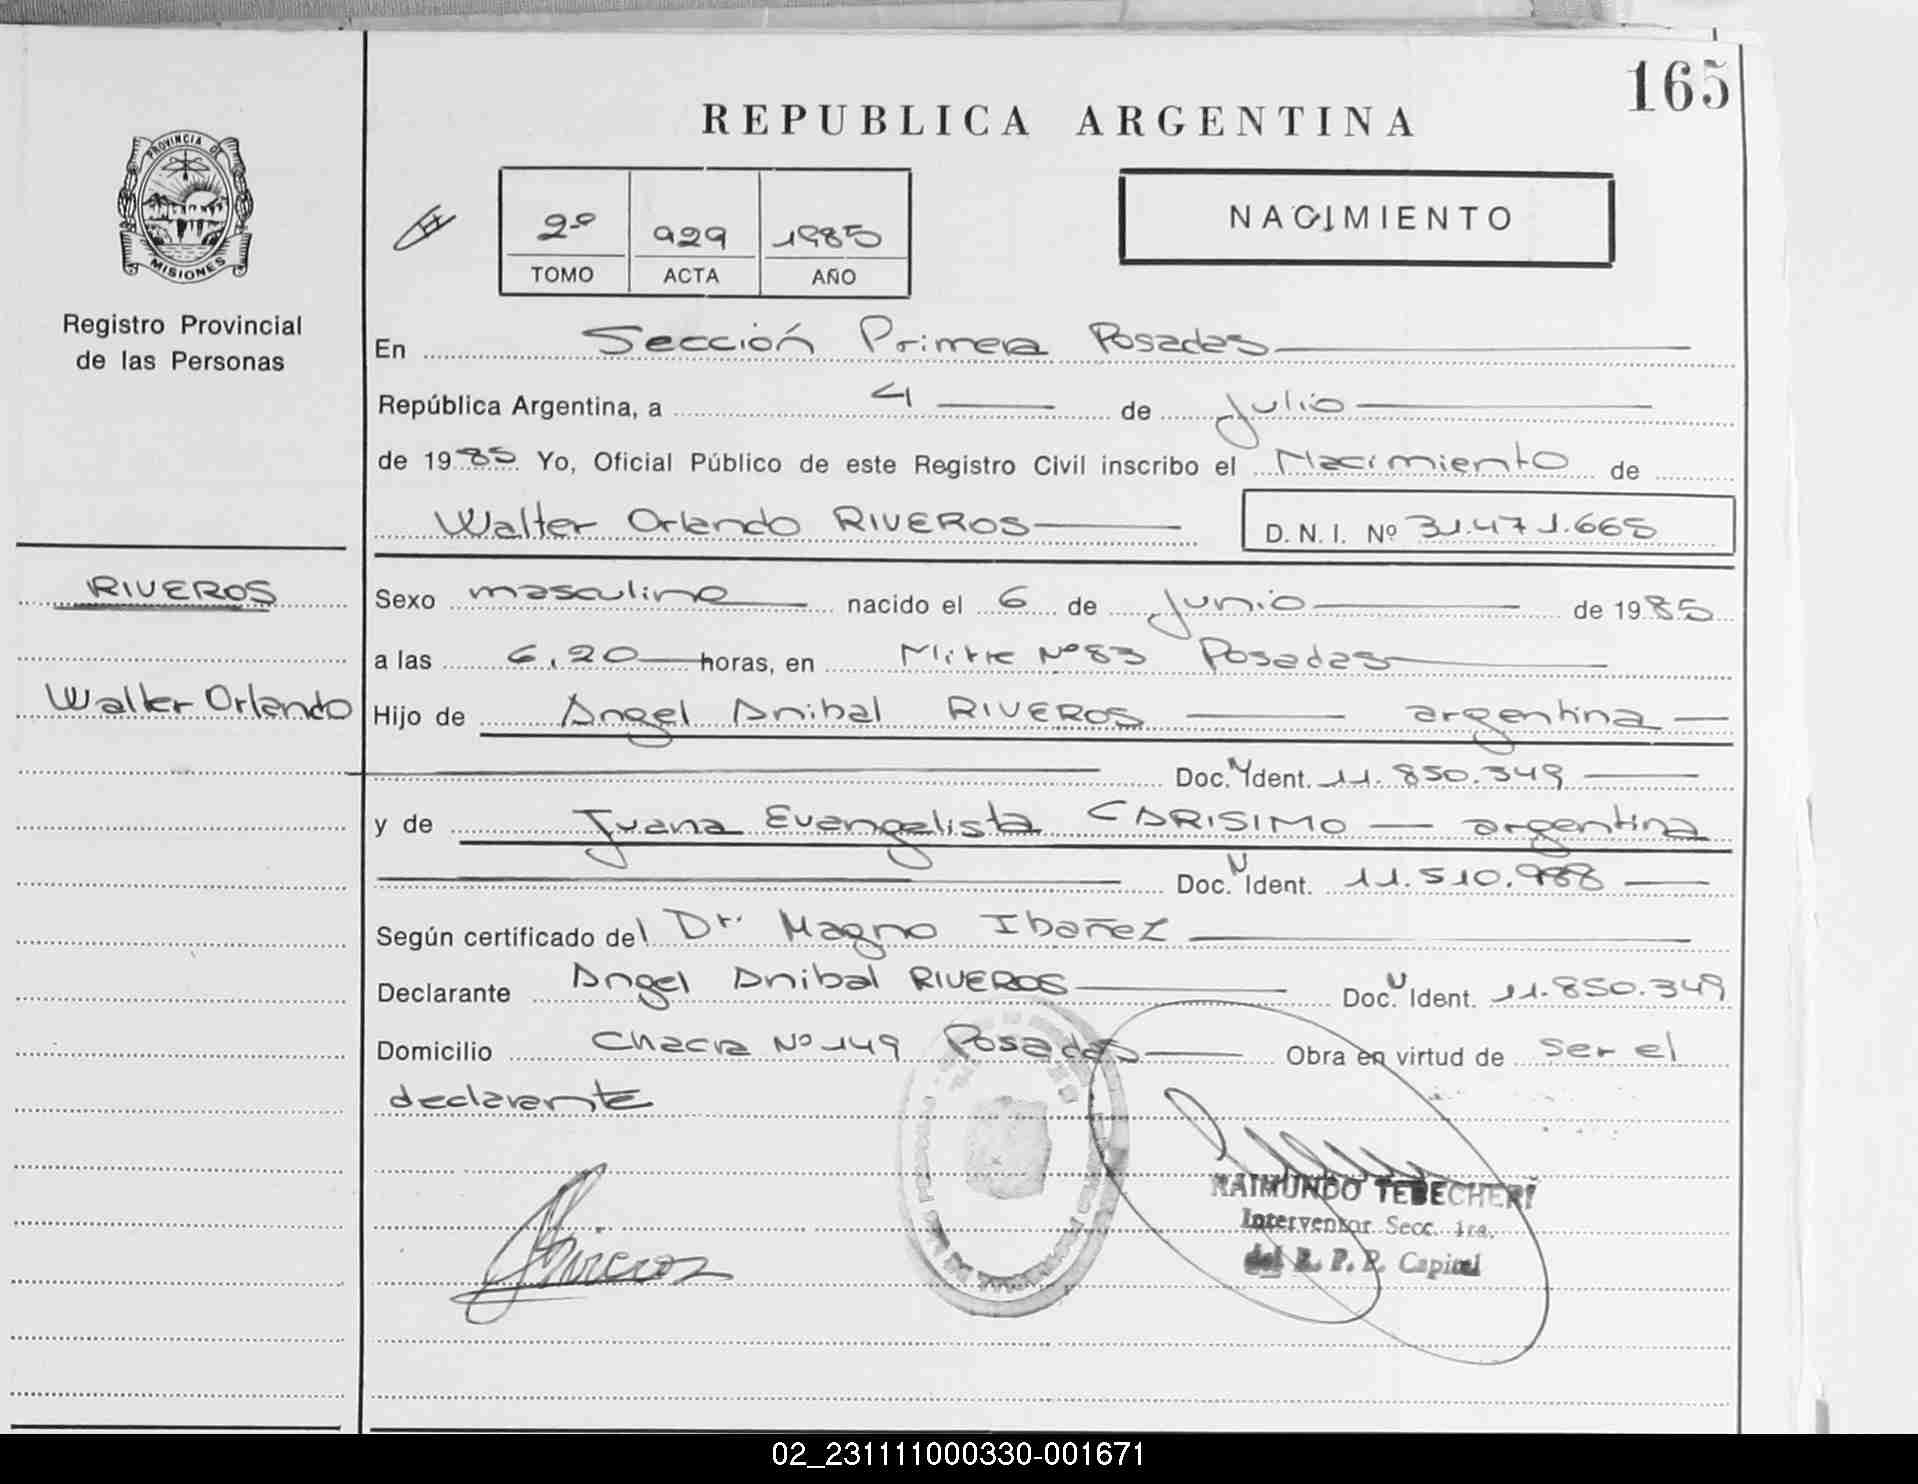 165
REPUBLICA ARGENTINA
PROVINCIA DE
MISIONES
Registro Provincial
de las Personas
2º 929 1985
TOMO ACTA AÑO
NACIMIENTO
En Sección Primera Posadas
República Argentina, a 4 de Julio
de 1985. Yo, Oficial Público de este Registro Civil inscribo el Nacimiento de
Walter Orlando RIVEROS D. N. I. Nº 31.471.665
RIVEROS
Sexo masculino nacido el 6 de Junio de 1985
a las 6,20 horas, en Mitre Nº 83 Posadas
Walter Orlando
Hijo de Angel Anibal RIVEROS argentina
Doc. Ident. 11.850.349
y de Juana Evangelista CARISIMO argentina
Doc. Ident. 11.510.988
Según certificado del Dr. Magno Ibañez
Declarante Angel Anibal RIVEROS Doc. Ident. 11.850.349
Domicilio Chacra Nº 149 Posadas Obra en virtud de ser el
declarante
RAIMUNDO TEBECHERI
Interventor Secc. 1ra.
del R. P. P. Capital
02_231111000330-001671